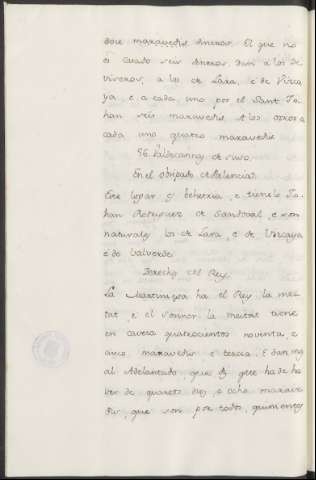 doce maravedis dineros. El que no
es casado seis dineros. Dan a los de
Viveros, a los de Lara, e de Vizca
ya, e a cada uno por el Sant Jo
han seis maravedis. A los otros a
cada uno quatro maravedis
96. Valdecannas de suso.
En el obispado de Palencia.
Este logar es behetria, e tienelo Jo
han Rodriguez de Sandoval, e son
naturales los de Lara, e de Vizcaya
e de Valverde.
Derechos del Rey.
La Martiniega ha el Rey la mei
tat, e el Sennor la meitat tiene
en cavera quatrocientos noventa e
cinco maravedis e tercia. E dan
al Adelantado que
ver de quarenta dies, e ocho marave
dis, que son por todos, quinientos